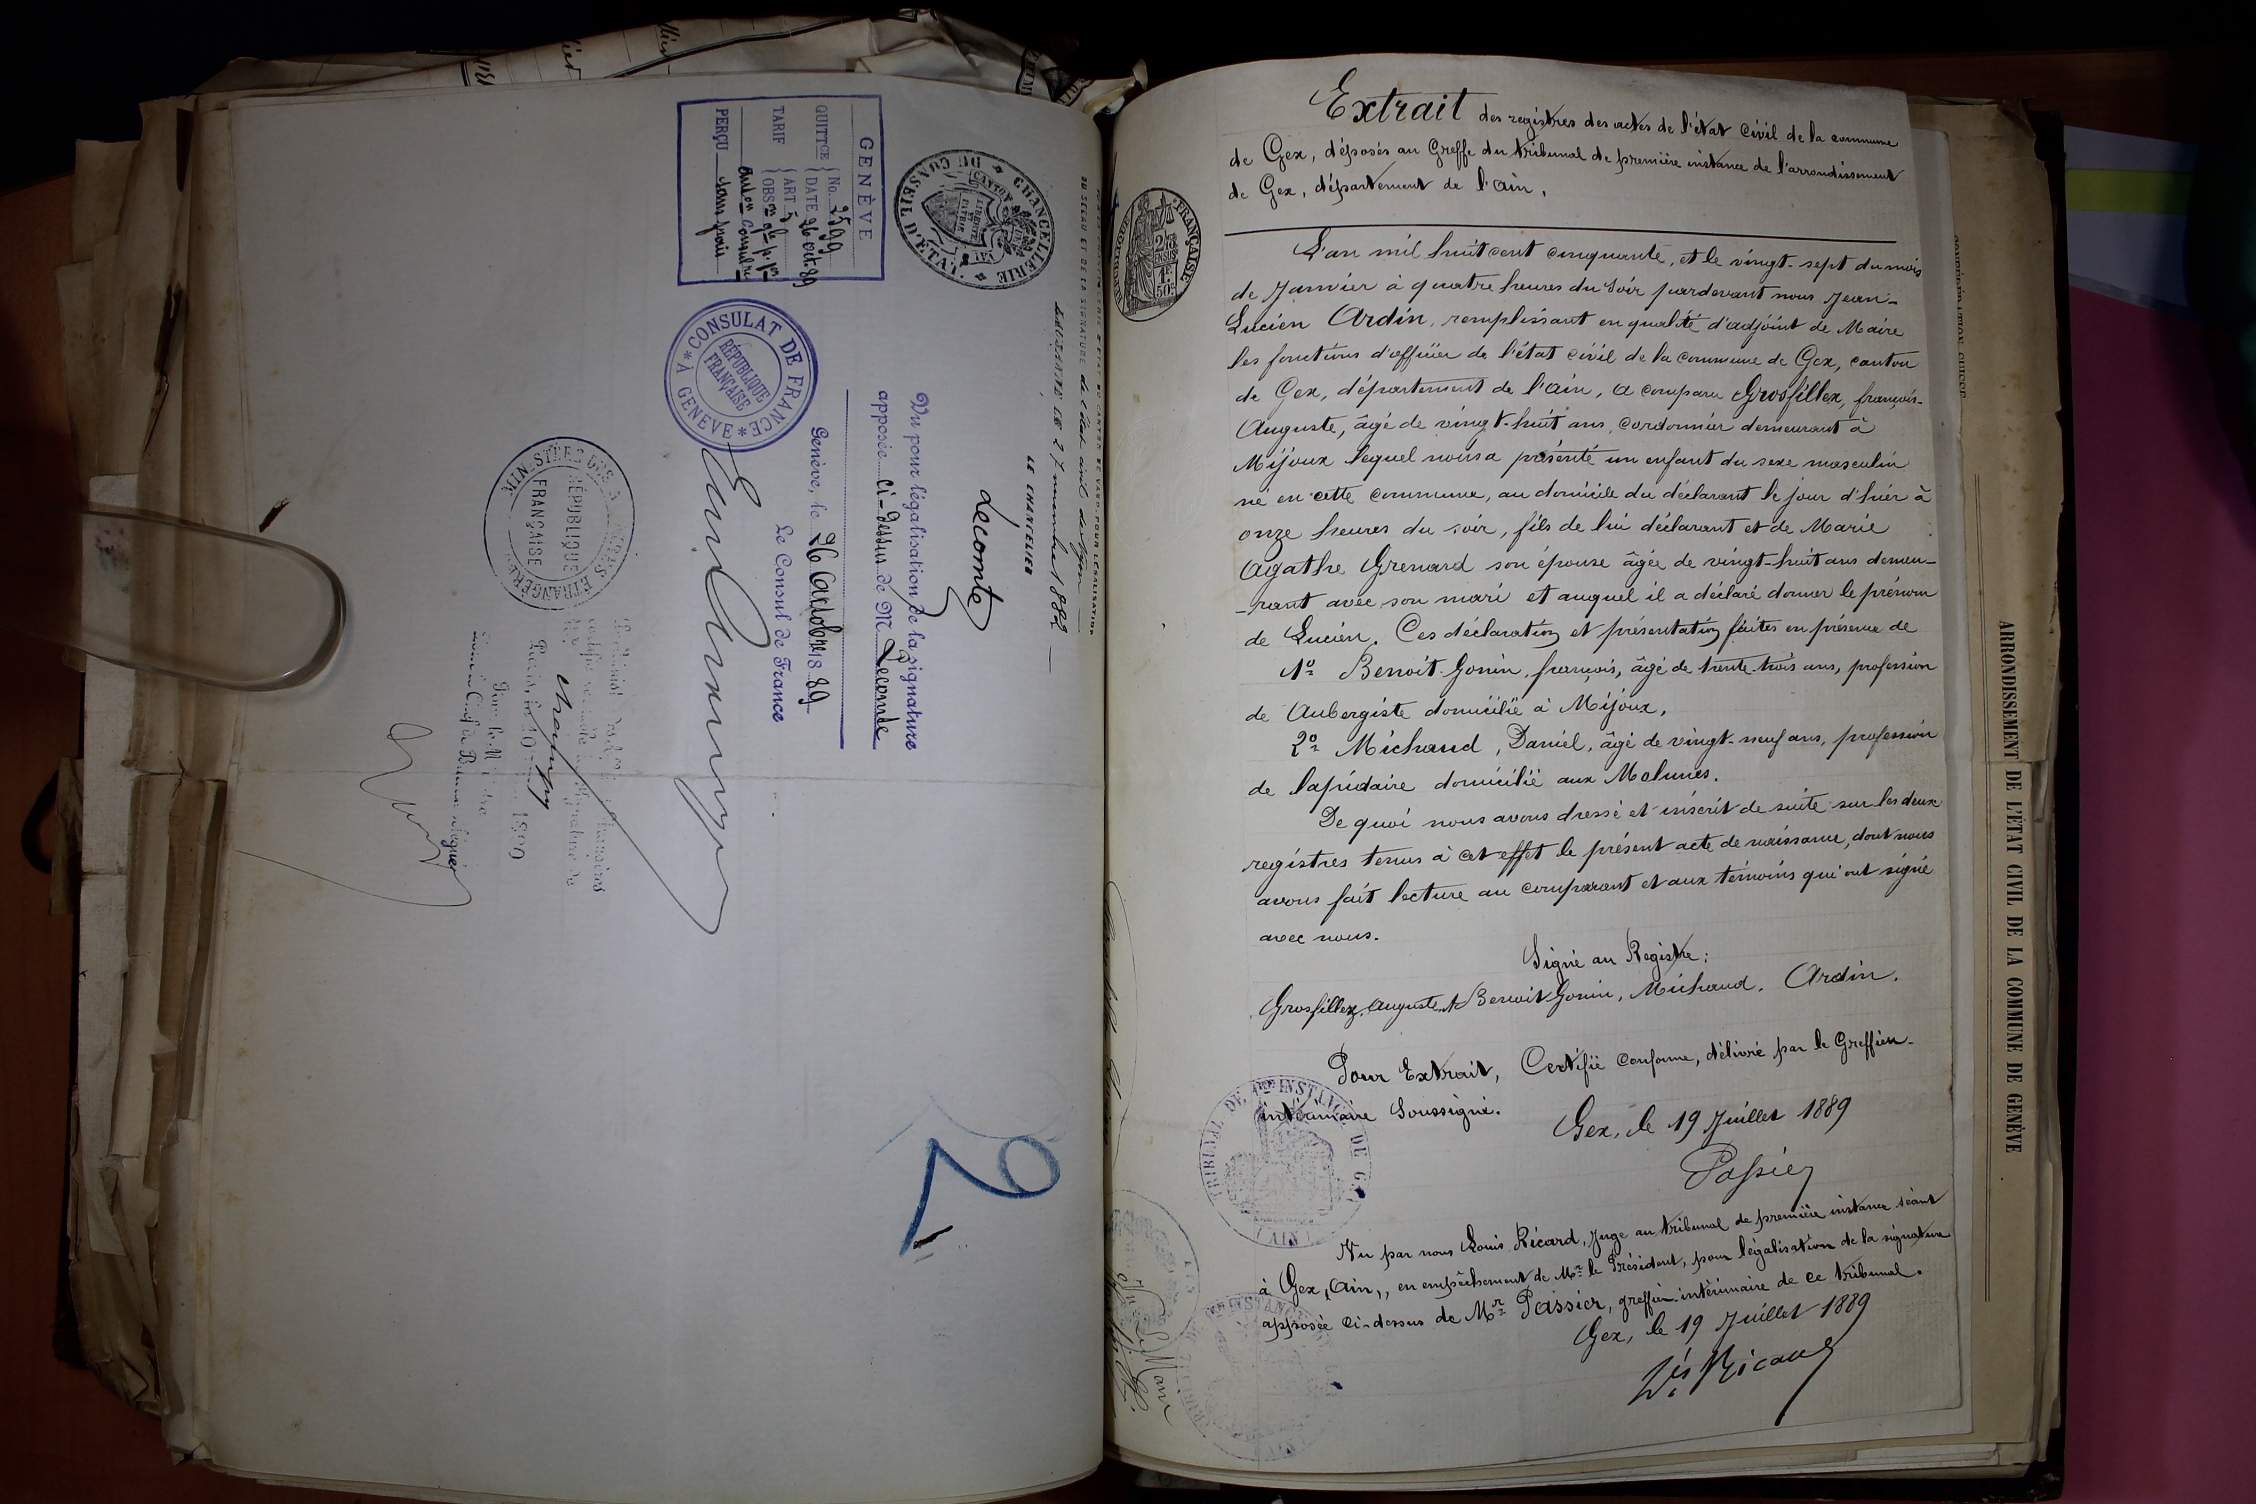 GENÈVE
QUITTCE No. 2599
DATE 26 oct. 89
TARIF ART 5
PERÇU sans frais
CHANCELLERIE DU CONSEIL D'ÉTAT
CANTON DE VAUD
LIBERTÉ ET PATRIE
DU SCEAU ET DE LA SIGNATURE de l'état civil
LAUSANNE LE 27
LE CHANCELIER
Lecomte
Vu pour légalisation de la signature
apposée ci-dessus de M. Lecomte
Genève, le 26 Octobre 1889
Le Consul de France
CONSULAT DE FRANCE A GENÈVE
RÉPUBLIQUE FRANÇAISE
MINISTÈRE DES AFFAIRES ETRANGÈRES
RÉPUBLIQUE FRANÇAISE
2
Extrait des registres des actes de l'état civil de la commune
de Gex, déposés au Greffe du tribunal de première instance de l'arrondissement
de Gex, département de l'Ain.
L'an mil huit cent cinquante, et le vingt-sept du mois
de Janvier à quatre heures du soir pardevant nous Jean-
Lucien Ardin, remplissant en qualité d'adjoint de Maire
les fonctions d'officier de l'état civil de la commune de Gex, canton
de Gex, département de l'Ain, a comparu Grosfillex, françois-
Auguste, âgé de vingt-huit ans, cordonnier demeurant à
Mijoux lequel nous a présenté un enfant du sexe masculin
né en cette commune, au domicile du déclarant le jour d'hier à
onze heures du soir, fils de lui déclarant et de Marie
Agathe Grenard son épouse âgée de vingt-huit ans demeu-
-rant avec son mari et auquel il a déclaré donner le prénom
de Lucien. Ces déclaration et présentation faites en présence de
1º Benoit-Gonin, françois, âgé de trente-trois ans, profession
de Aubergiste domicilié à Mijoux,
2º Michaud, Daniel, âgé de vingt-neuf ans, profession
de lapidaire domicilié aux Molunes.
De quoi nous avons dressé et inscrit de suite sur les deux
registres tenus à cet effet le présent acte de naissance, dont nous
avons fait lecture au comparant et aux témoins qui ont signé
avec nous.
Signé au Registre:
Grosfillex, Auguste, Benoit Gonin, Michaud, Ardin.
Pour Extrait, Certifié conforme, délivré par le Greffier
intérimaire soussigné.
Gex, le 19 Juillet 1889
Passier
Vu par nous Louis Ricard, Juge au tribunal de première instance séant
à Gex, (Ain), en empêchement de Mr le Président, pour légalisation de la signature
apposée ci-dessus de Mr Passier, greffier intérimaire de ce tribunal.
Gex, le 19 Juillet 1889
Ls Ricard
TRIBUNAL DE 1ère INSTANCE DE GEX
(AIN)
ARRONDISSEMENT DE L'ÉTAT CIVIL DE LA COMMUNE DE GENÈVE